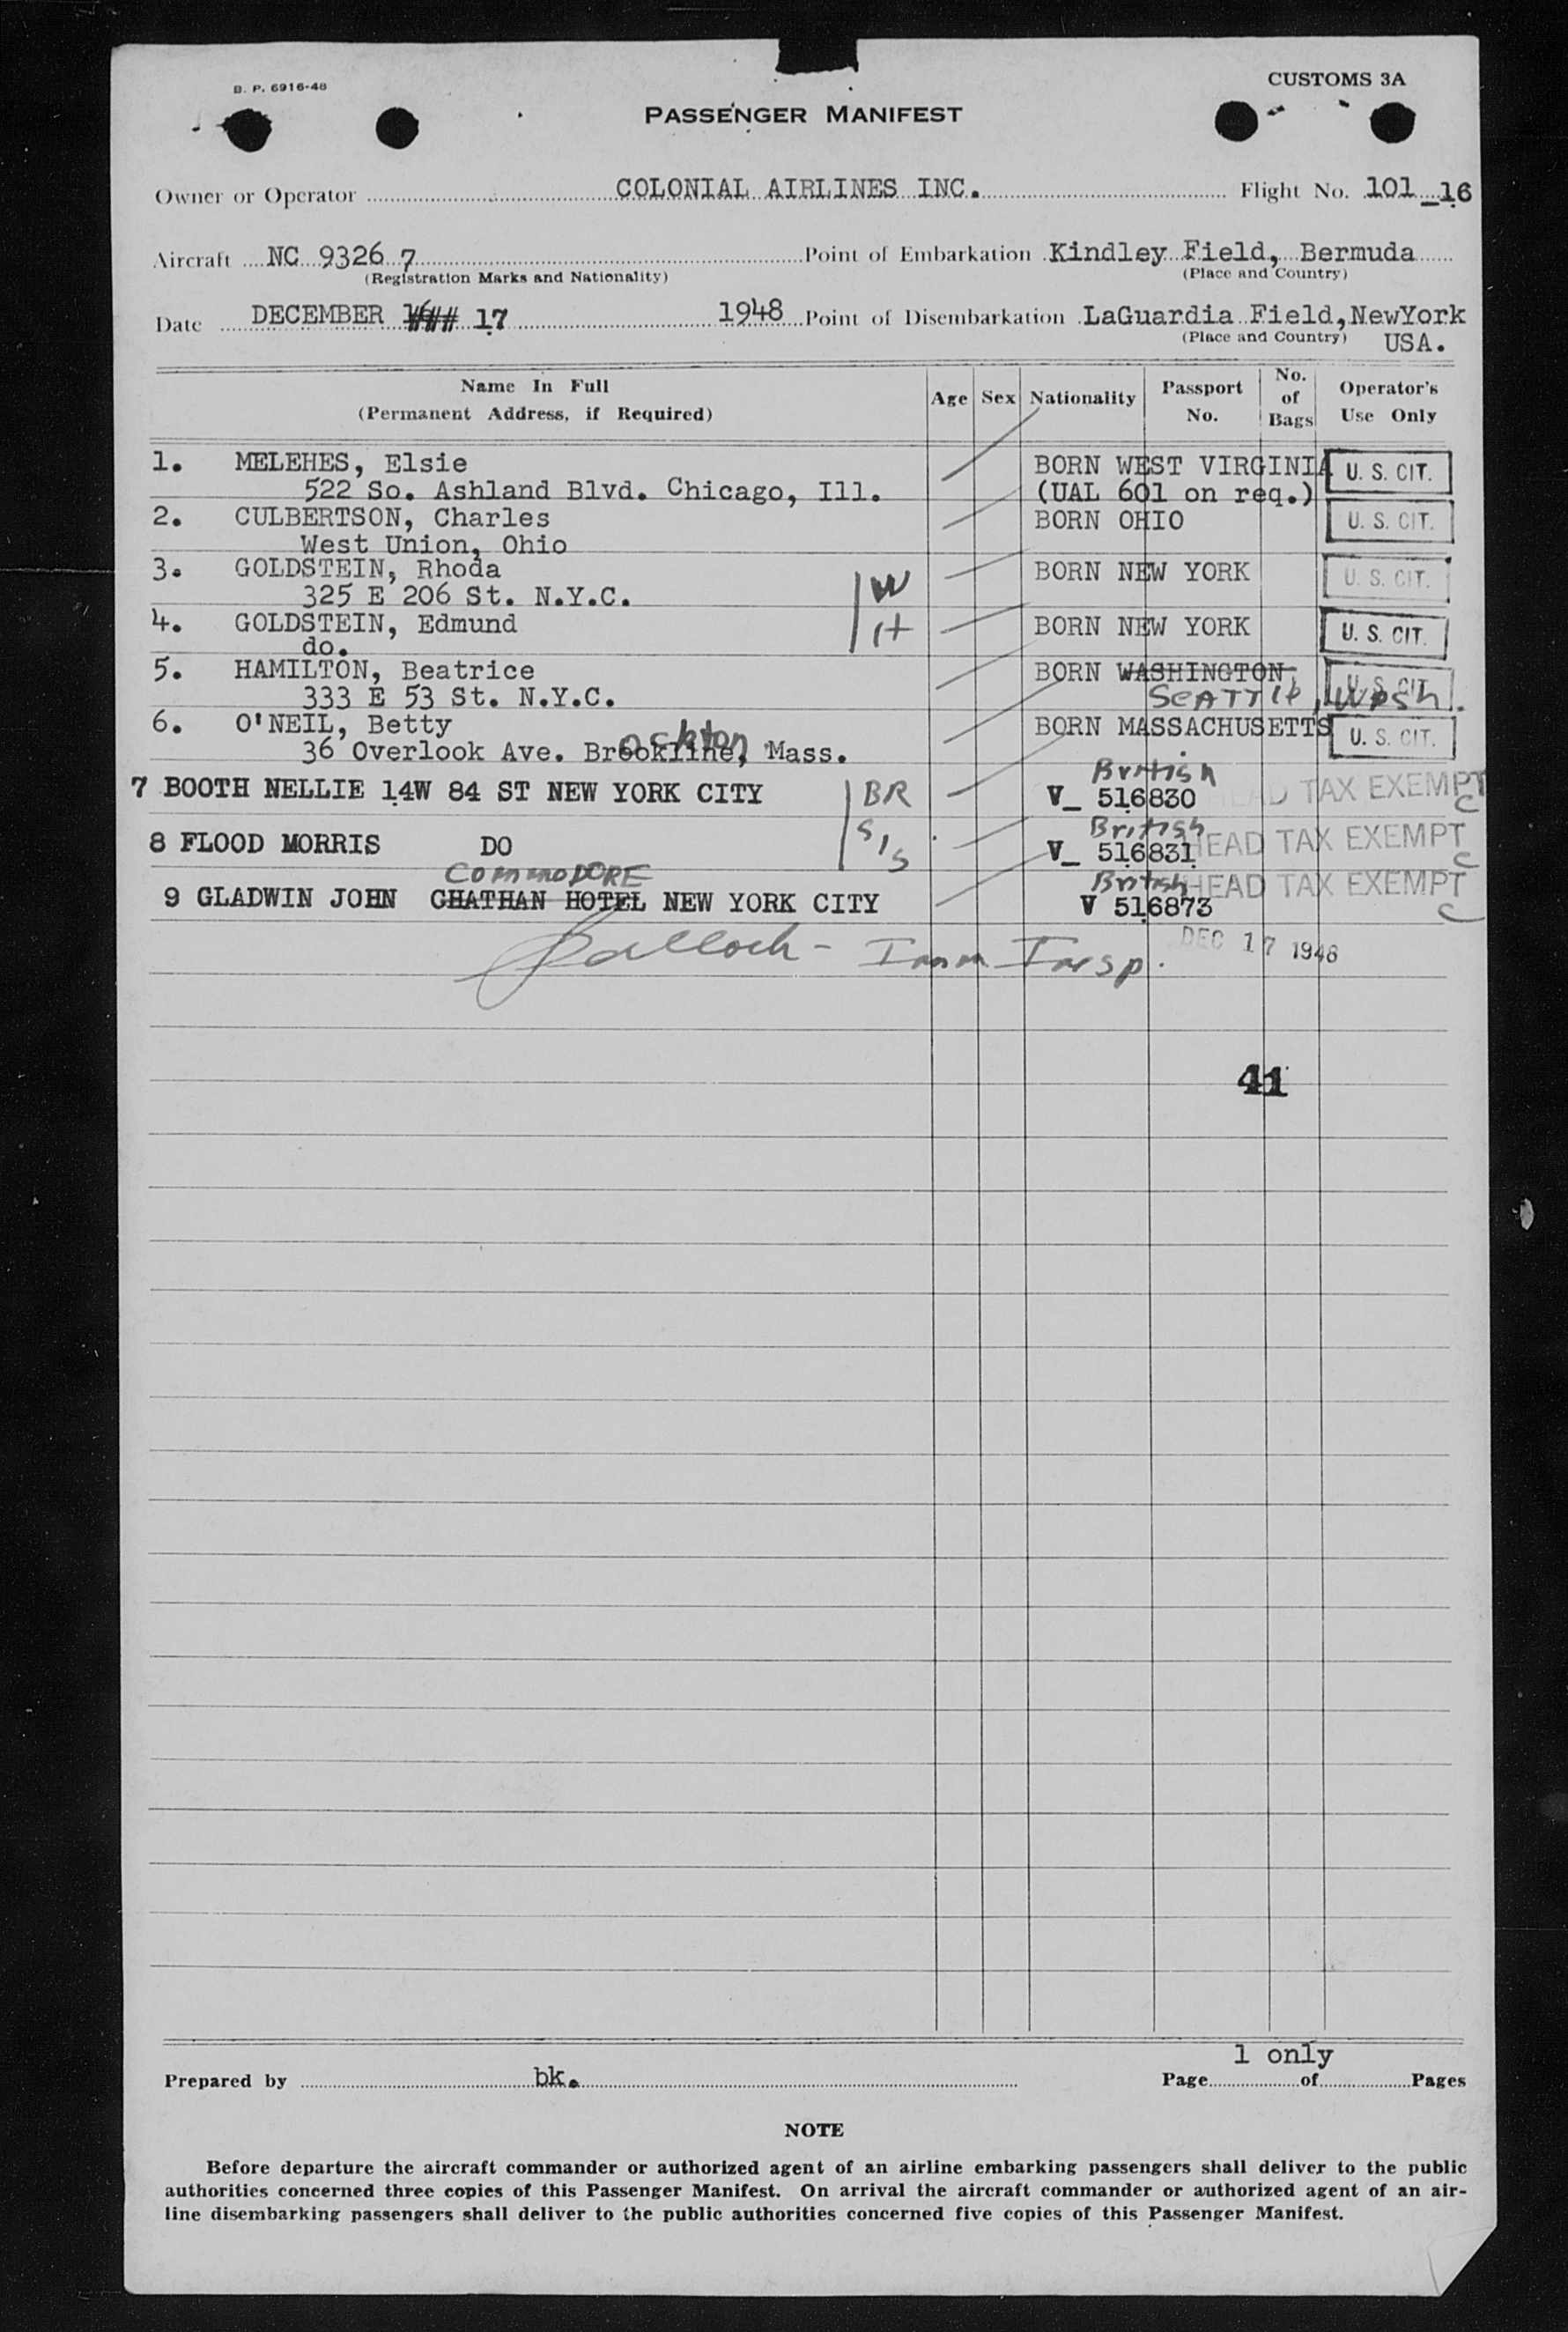 B. P. 6916-48
CUSTOMS 3A
PASSENGER MANIFEST
Owner or Operator COLONIAL AIRLINES INC. Flight No. 101_16
Aircraft NC 9326 7 Point of Embarkation Kindley Field, Bermuda
(Registration Marks and Nationality) (Place and Country)
Date DECEMBER 17 1948 Point of Disembarkation LaGuardia Field, NewYork
(Place and Country) USA.
Name In Full (Permanent Address, if Required) Age Sex Nationality Passport No. No. of Bags Operator's Use Only
1. MELEHES, Elsie BORN WEST VIRGINIA U. S. CIT.
522 So. Ashland Blvd. Chicago, Ill. (UAL 601 on req.)
2. CULBERTSON, Charles BORN OHIO U. S. CIT.
West Union, Ohio
3. GOLDSTEIN, Rhoda W BORN NEW YORK U. S. CIT.
325 E 206 St. N.Y.C.
4. GOLDSTEIN, Edmund H BORN NEW YORK U. S. CIT.
do.
5. HAMILTON, Beatrice BORN WASHINGTON, U. S. CIT.
333 E 53 St. N.Y.C. SEATTLE, WASH.
6. O'NEIL, Betty BORN MASSACHUSETTS U. S. CIT.
ockton
36 Overlook Ave. Brookline, Mass.
British
7 BOOTH NELLIE 14W 84 ST NEW YORK CITY BR V_ 516830 HEAD TAX EXEMPT
C
British
8 FLOOD MORRIS DO SIS V_ 516831 HEAD TAX EXEMPT
C
COMMODORE British HEAD TAX EXEMPT
9 GLADWIN JOHN CHATHAN HOTEL NEW YORK CITY V 516873
C
Imm Insp. DEC 17 1948
41
1 only
Prepared by bk. Page of Pages
NOTE
Before departure the aircraft commander or authorized agent of an airline embarking passengers shall deliver to the public
authorities concerned three copies of this Passenger Manifest. On arrival the aircraft commander or authorized agent of an air-
line disembarking passengers shall deliver to the public authorities concerned five copies of this Passenger Manifest.